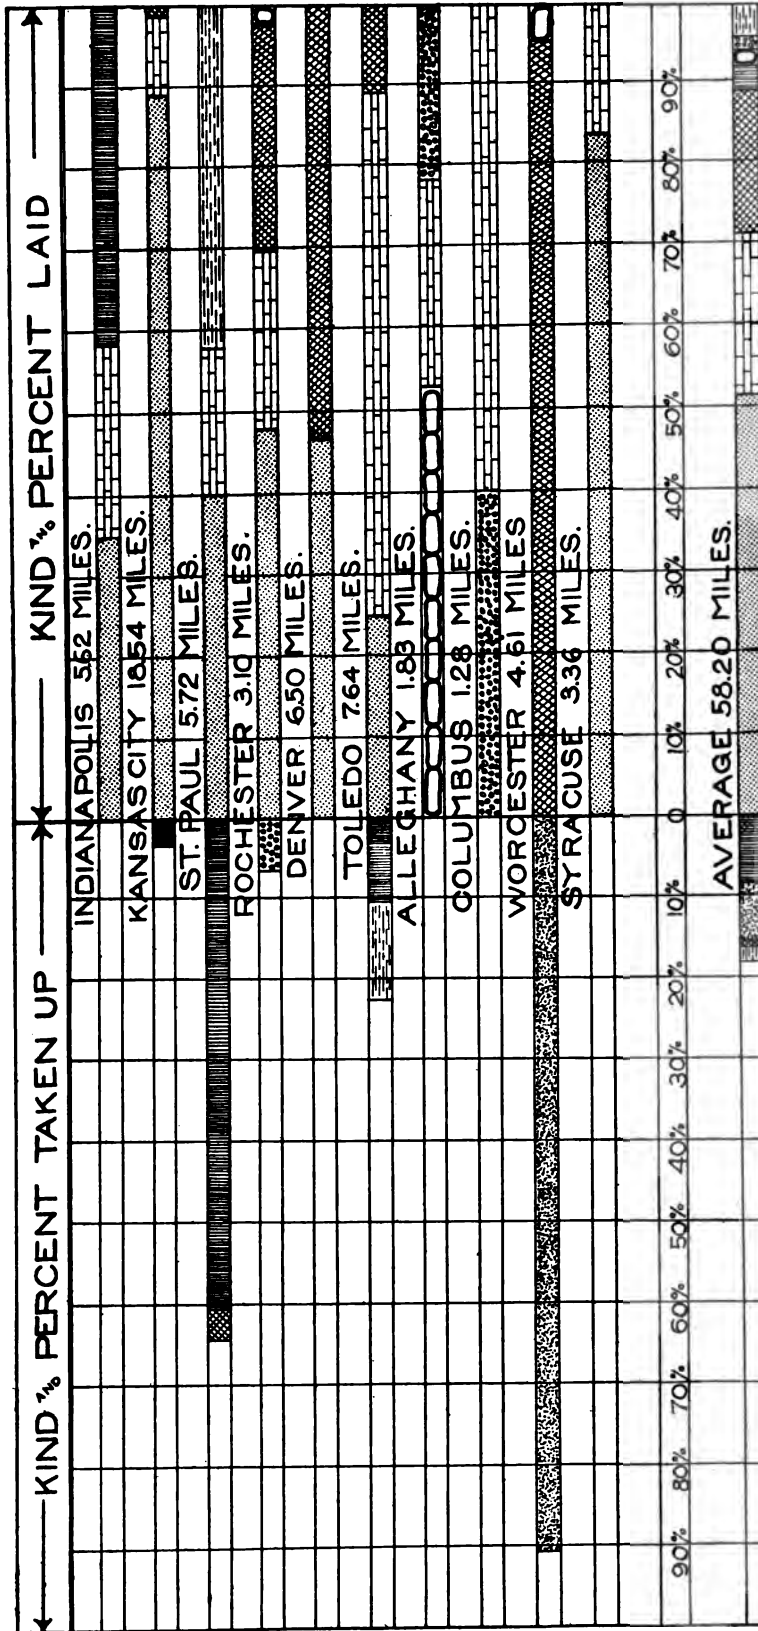 KIND & PERCENT TAKEN UP
KIND & PERCENT LAID
INDIANAPOLIS 5.62 MILES.
KANSAS CITY 18.54 MILES.
ST. PAUL 5.72 MILES.
ROCHESTER 3.10 MILES.
DENVER 6.50 MILES.
TOLEDO 7.64 MILES.
ALLEGHANY 1.83 MILES.
COLUMBUS 1.28 MILES.
WORCESTER 4.61 MILES
SYRACUSE 3.36 MILES.
90% 80% 70% 60% 50% 40% 30% 20% 10% 0 10% 20% 30% 40% 50% 60% 70% 80% 90%
AVERAGE 58.20 MILES.